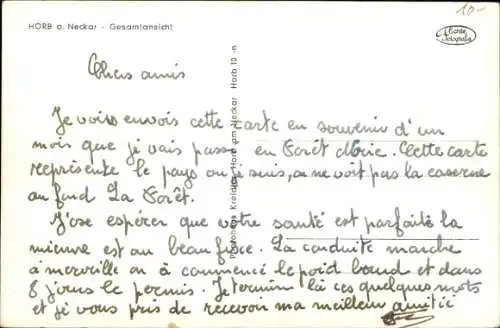 HORB a. Neckar - Gesamtansicht
10.-
Chers amis
Je vous envois cette carte en souvenir d'un
mois que je vais passer en Forêt Noire. Cette carte
représente le pays ou je suis, on ne voit pas la caserne
au fond La Forêt.
J'ose espérer que votre santé est parfaite la
mienne est au beau fixe. La conduite marche
à merveille on à commencé le poid lourd et dans
8 jours le permis. Je termine ici ces quelques mots
et je vous pris de recevoir ma meilleur amitié
Horb am Neckar Horb 10